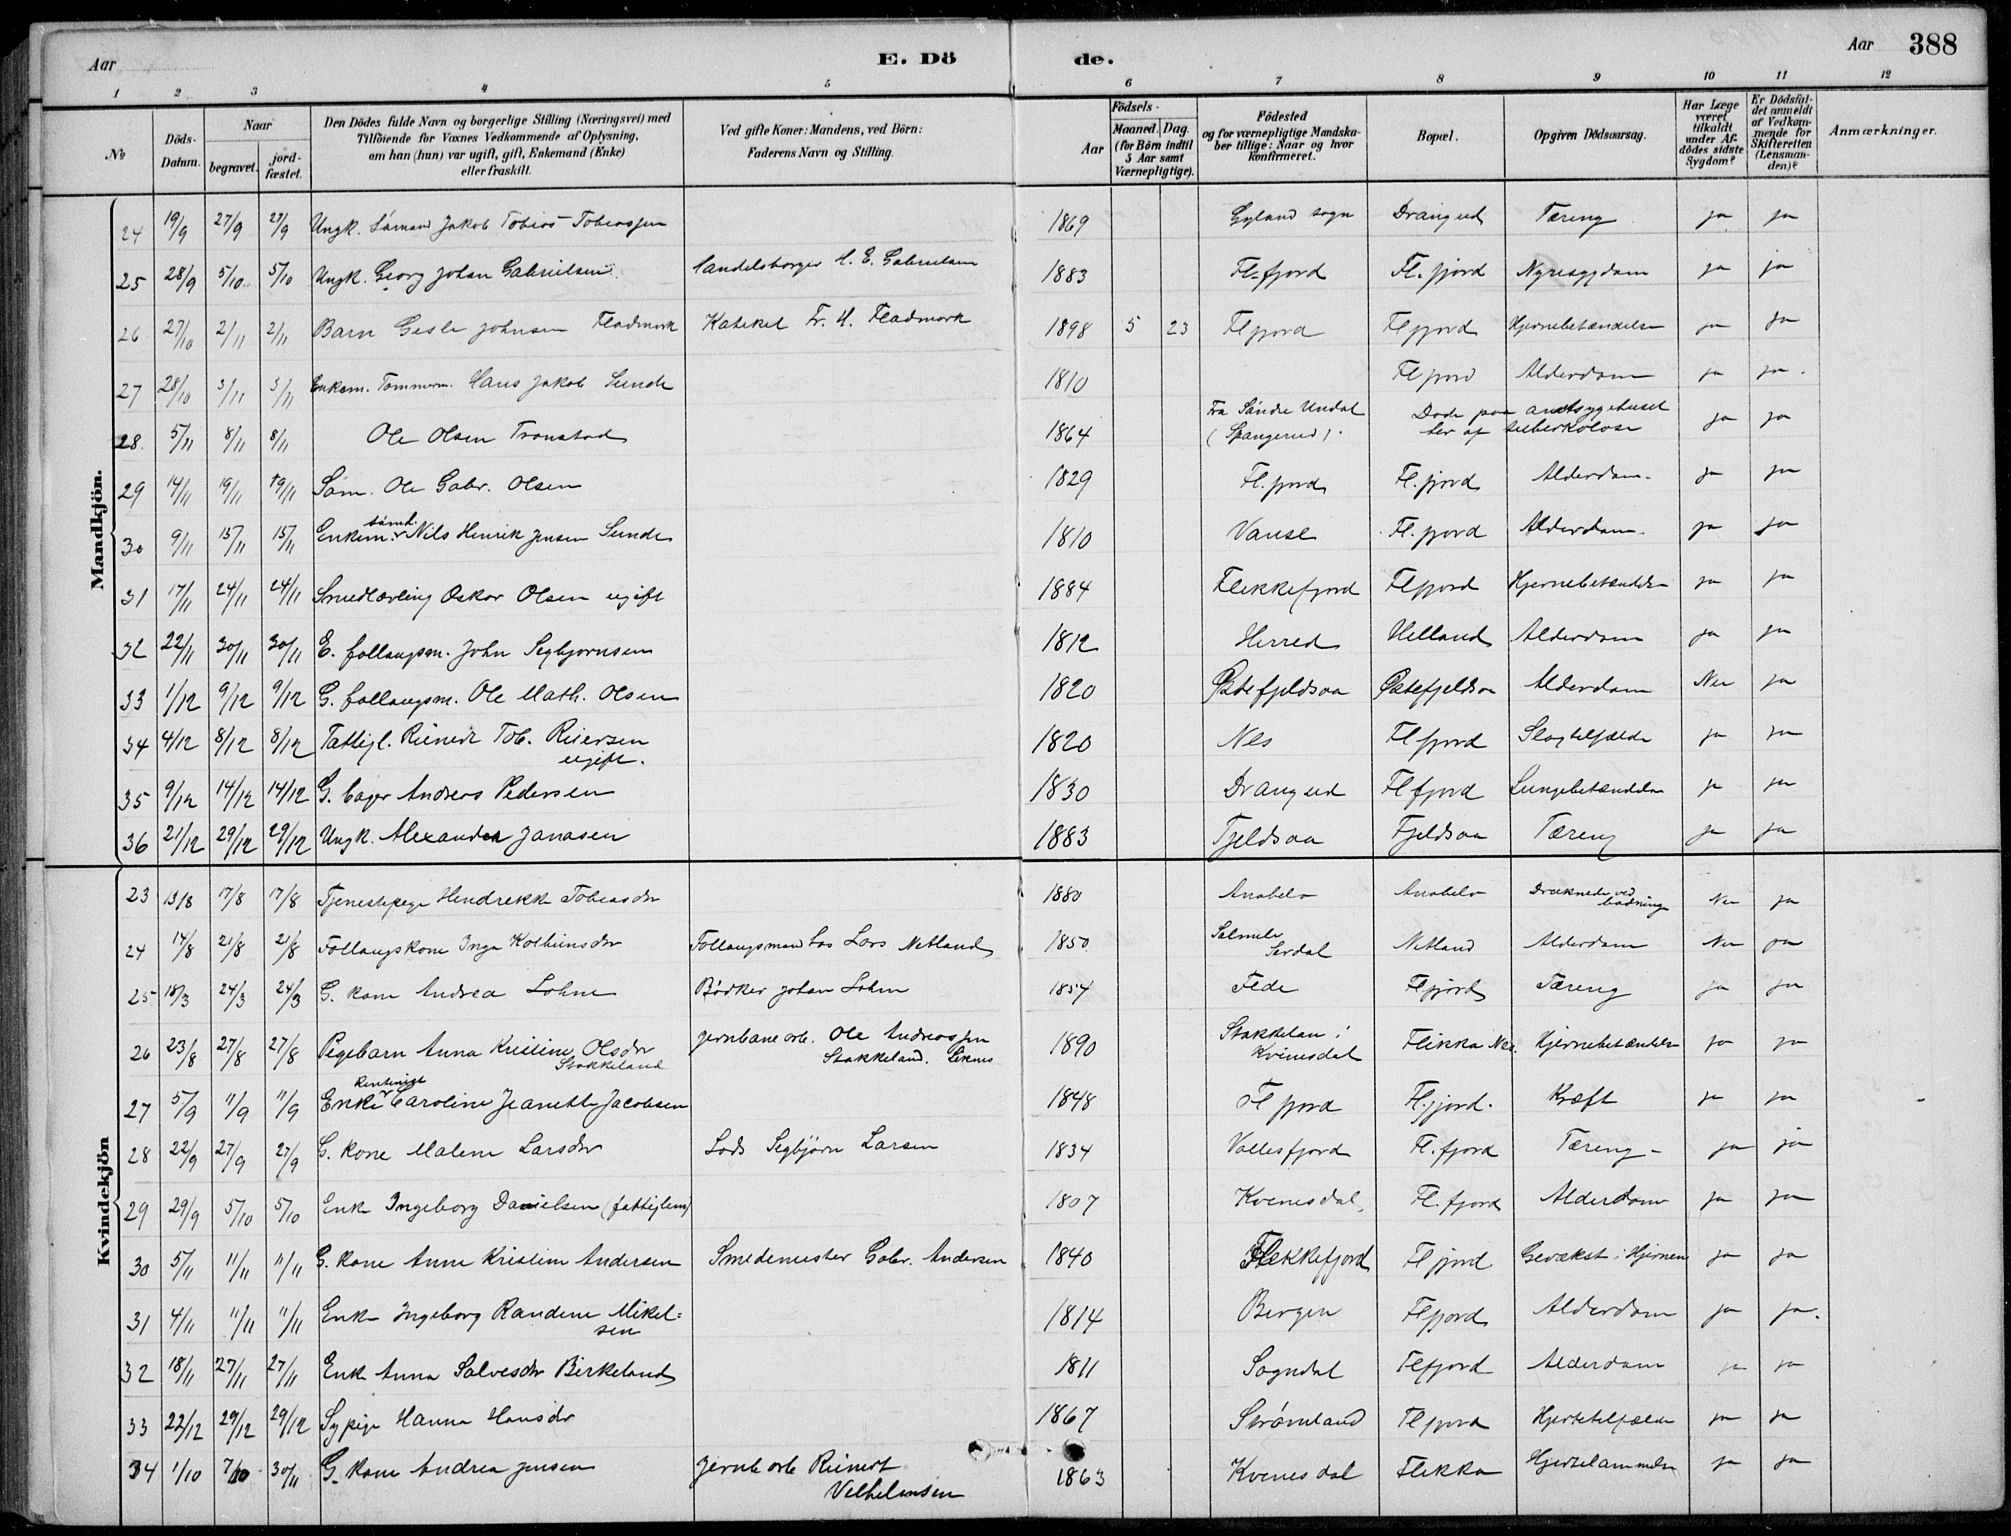 Aar E. Dö de. Aar 388
1 2 3 4 5 6 7 8 9 10 11 12
№ Döds-Datum. Naar begravet. jord-fæstet. Den Dödes fulde Navn og borgerlige Stilling (Næringsvei) med Tilföiende for Voxnes Vedkommende af Oplysning, om han (hun) var ugift, gift, Enkemand (Enke) eller fraskilt. Ved gifte Koner: Mandens, ved Börn: Faderens Navn og Stilling. Födsels- Aar Maaned. Dag. (for Börn indtil 5 Aar samt Værnepligtige). Födested og for værnepligtige Mandskaber tillige: Naar og hvor konfirmeret. Bopæl. Opgiven Dödsaarsag. Har Læge været tilkaldt under Afdödes sidste Sygdom? Er Dödsfaldet anmeldt af Vedkommende for Skifteretten (Lensmanden)? Anmærkninger.
Mandkjön.
24 19/9 27/9 27/9 Ungk. Sömand Jakob Tobias Tobiassen 1869 Gyland sogn Drangeid Tæring ja ja
25 28/9 5/10 5/10 Ungk. Georg Johan Gabrielsen Handelsborger H. E. Gabrielsen 1883 Fl.fjord Fl.fjord Nyresygdom ja ja
26 27/10 2/11 2/11 Barn Gesle Johnsen Fladmark Kateket Fr. H. Fladmark 1898 5 23 Flfjord Flfjord Hjernebetændelse ja ja
27 28/10 3/11 3/11 Enkem. Tømmerm. Hans Jakob Sunde 1810 Flfjord Alderdom ja ja.
28. 5/11 8/11 8/11 Ole Olsen Tronstad 1864 Fra Söndre Undal (Spangereid). Døde paa amtsygehuset her af tuberkulose ja ja
29 14/11 19/11 19/11 Søm. Ole Gabr. Olsen 1829 Fl.fjord Fl.fjord Alderdom. ja ja
30 9/11 15/11 15/11 Enkem. Nils Henrik Jensen Sunde 1810 Vanse Fl.fjord Alderdom. ja ja
31 17/11 24/11 24/11 Smedlærling Oskar Olsen ugift 1884 Flekkefjord Flfjord Hjernebetændelse ja ja
32 22/11 30/11 30/11 E. follaugsm. John Segbjørnsen 1812 Herred Helland Alderdom ja ja
33 1/12 9/12 9/12 G. follaugsm. Ole Math. Olsen 1820 Østefjeldsaa Østefjeldsaa Alderdom Nei ja
34 4/12 8/12 8/12 Fattigl. Reinert Tob. Reiersen
ugift. 1820 Nes Flfjord Slagtilfælde ja ja
35 9/12 14/12 14/12 G. bager Andreas Pedersen 1830 Drangeid Flfjord Lungebetændelse ja ja
36 21/12 29/12 29/12 Ungk. Alexander Janasen 1883 Fjeldsaa Fjeldsaa Tæring ja ja
Kvindekjön
23 13/8 17/8 17/8 Tjenestepige Hendrekke Tobiasdr 1880 Anabelø Anabelø Druknede ved badning Nei ja
24 14/8 21/8 21/8 Follaugskone Inga Kolbensdr Follaugsmand Lars Netland 1850 Sirdal Netland Alderdom Nei ja
25 18/3 24/3 24/3 G. kone Andrea Lohne Bödker Johan Lohne 1854 Fede Flfjord Tæring ja ja
26 23/8 27/8 27/8 Pigebarn Anna Kristine Olsdr
Stakkeland Jernbanearb. Ole Andreassen Stakkeland. Liknes 1890 Stakkelan i Kvinesdal Flikka Nes. Hjernebetændelse ja ja
27 5/9 11/9 11/9 Enke Caroline Jeanette Jacobsen 1848 Flfjord Fl.fjord. Kræft ja ja
28 22/9 27/9 27/9 G. kone Malene Larsdr Lods Segbjørn Larsen 1834 Vollesfjord Fl.fjord Tæring ja ja
29 29/9 5/10 5/10 Enke Ingeborg Danielsen (fattiglem) 1807 Kvinesdal Fl.fjord Alderdom ja ja
30 5/11 11/11 11/11 G. kone Anne Kristine Andersen Smedemester Gabr. Andersen 1840 Flekkefjord Flfjord Gevækst i Hjernen ja ja
31 4/11 11/11 11/11 Enke Ingeborg Randine Mikel=
sen 1814 Bergen Flfjord Alderdom ja ja.
32 18/11 27/11 27/11 Enke Anna Salvesdr Birkeland 1811 Sogndal Flfjord Alderdom ja ja
33 22/12 29/12 29/12 Sypige Hanna Hansdr 1867 Strømland Flfjord Hjertetilfælde ja ja
34 1/10 7/10 30/11 G. kone Andrea Jensen Jernb.arb Reinert
Velhelmsen 1863 Kvinesdal Flikka Hjertelammelse ja ja